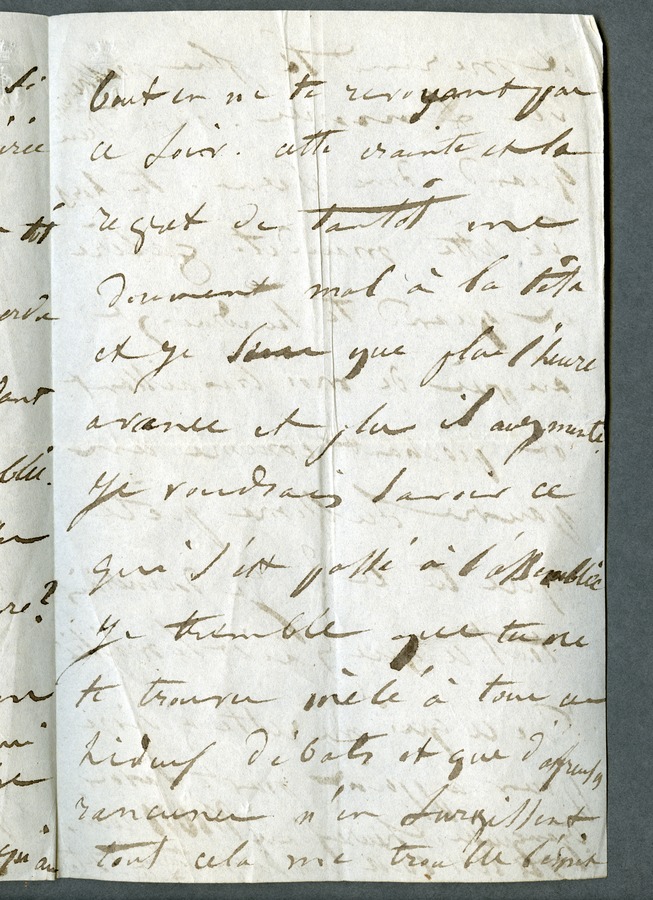 si
tout en ne te revoyant pas
ce soir. cette crainte et le
regret de tantôt me
donnent mal à la tête
et je sens que plus l'heure
avance et plus il augmente.
Je voudrais savoir ce
qui s'est passé à l'assemblée
Je tremble que tu ne
te trouves mêlé à tous ces
hideux débats et que d'affreuses
rancunes n'en surgissent
tout cela me trouble l'esprit